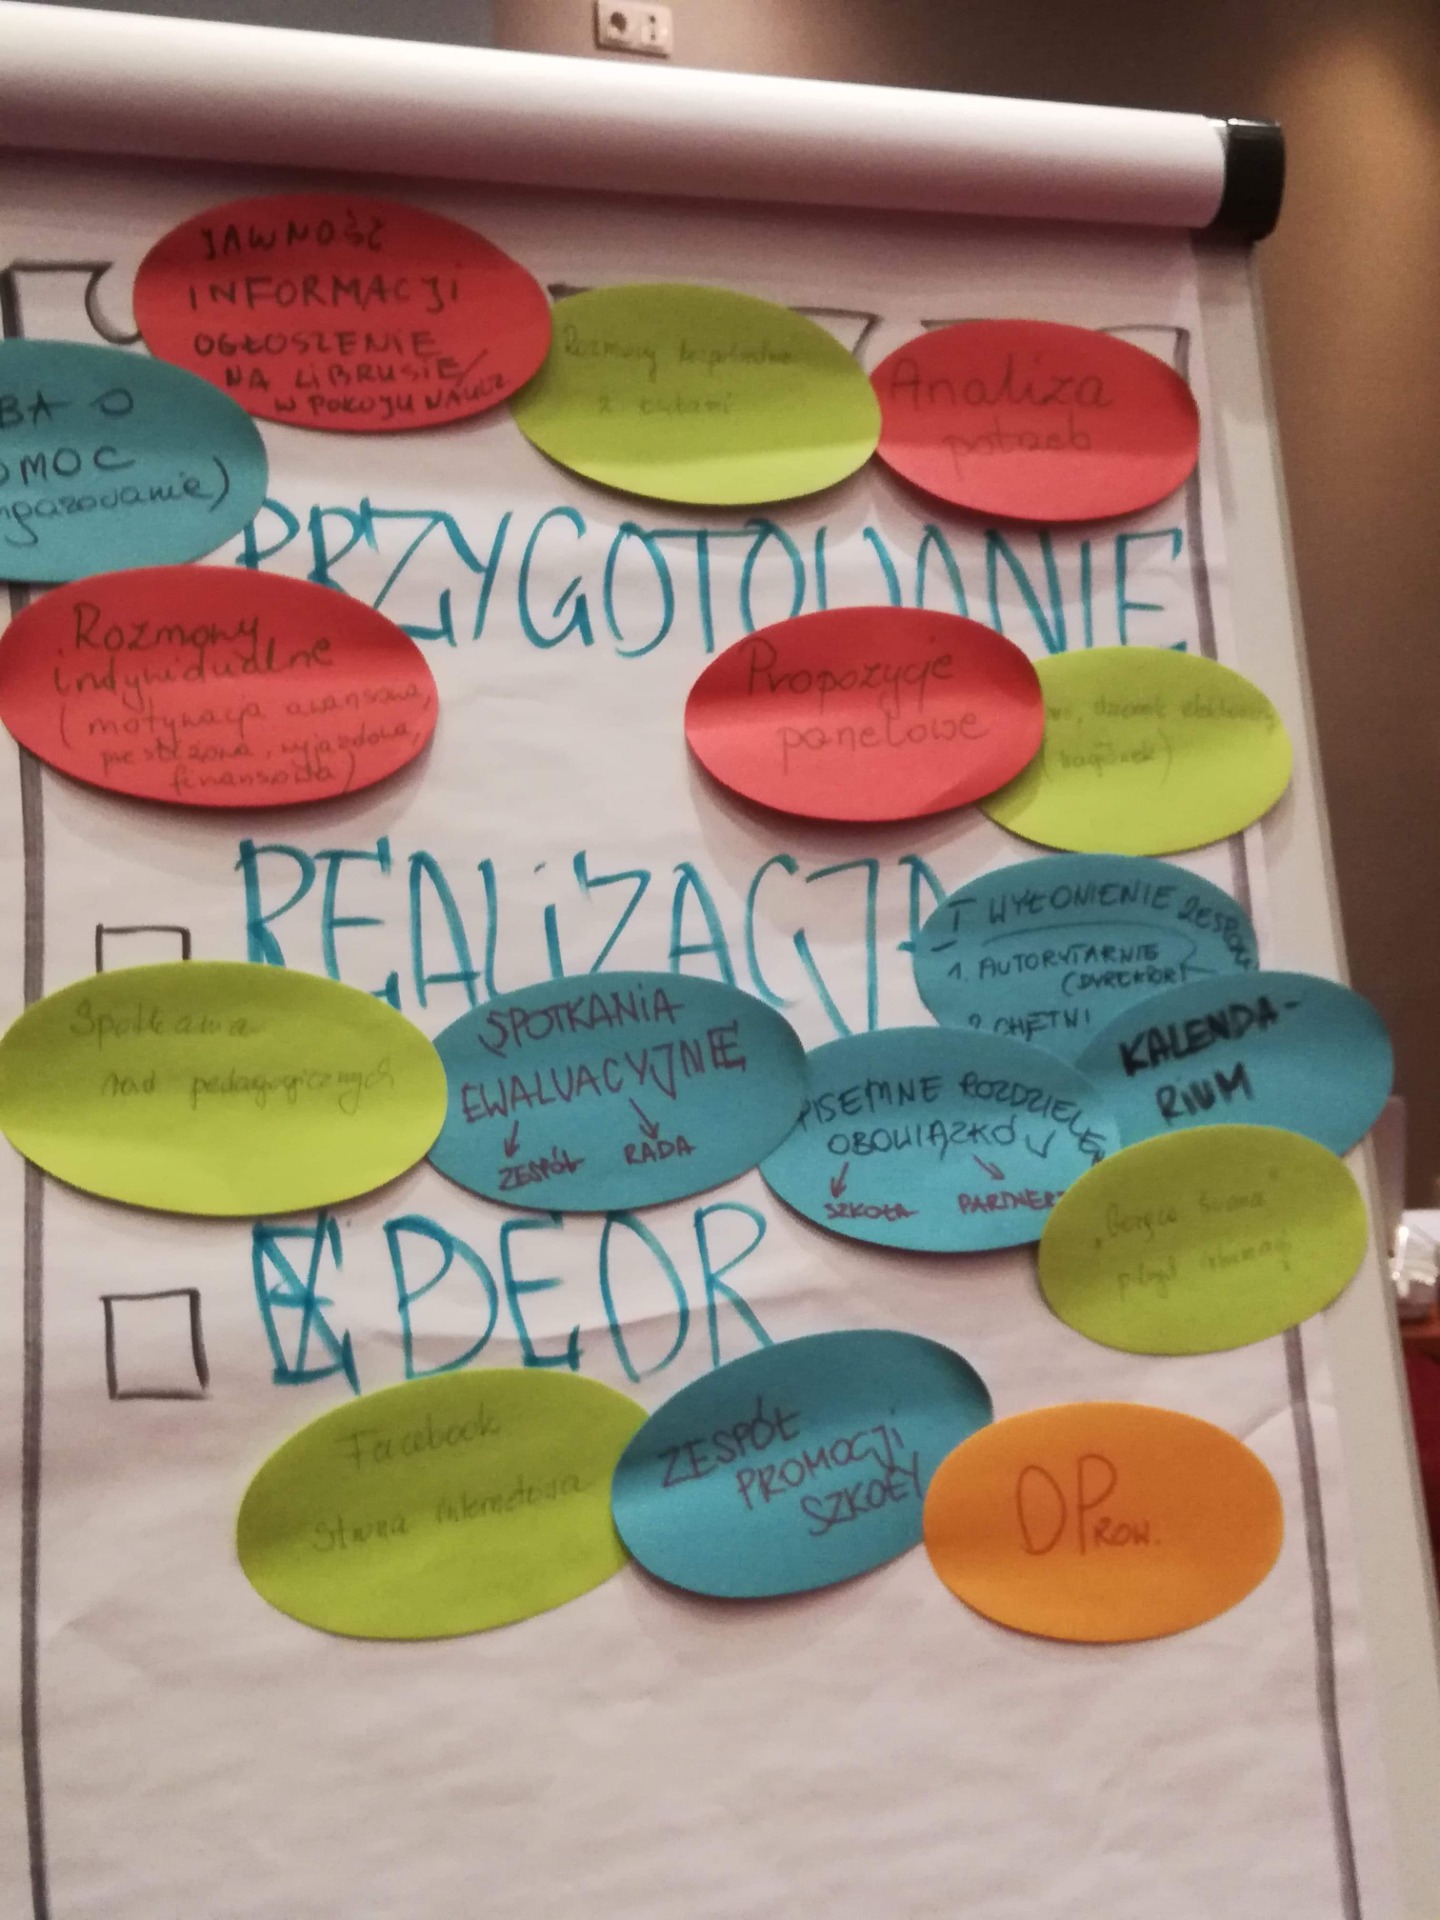 JAWNOŚĆ
INFORMACJI
OGŁOSZENIE
NA LIBRUSIE/
W POKOJU NAUCZ
Rozmowy bezpośrednie
z
Analiza
potrzeb
BA O
OMOC
PRZYGOTOWANIE
Rozmowy
indywidualne
(motywacja awansowa,
wyjazdowa,
finansowa)
Propozycje
panelowe
REALIZACJA
I WYŁONIENIE ZESPOŁU
1. AUTORYTARNIE
(DYREKTOR)
2 CHĘTNI
KALENDA-
RIUM
Spotkania
rad pedagogicznych
SPOTKANIA
EWALUACYJNE
ZESPÓŁ RADA
PISEMNE ROZDZIELEN
OBOWIĄZKÓW
SZKOŁA PARTNERZ
DEOR
Facebook
strona internetowa
ZESPÓŁ
PROMOCJI
SZKOŁY
OPROW.